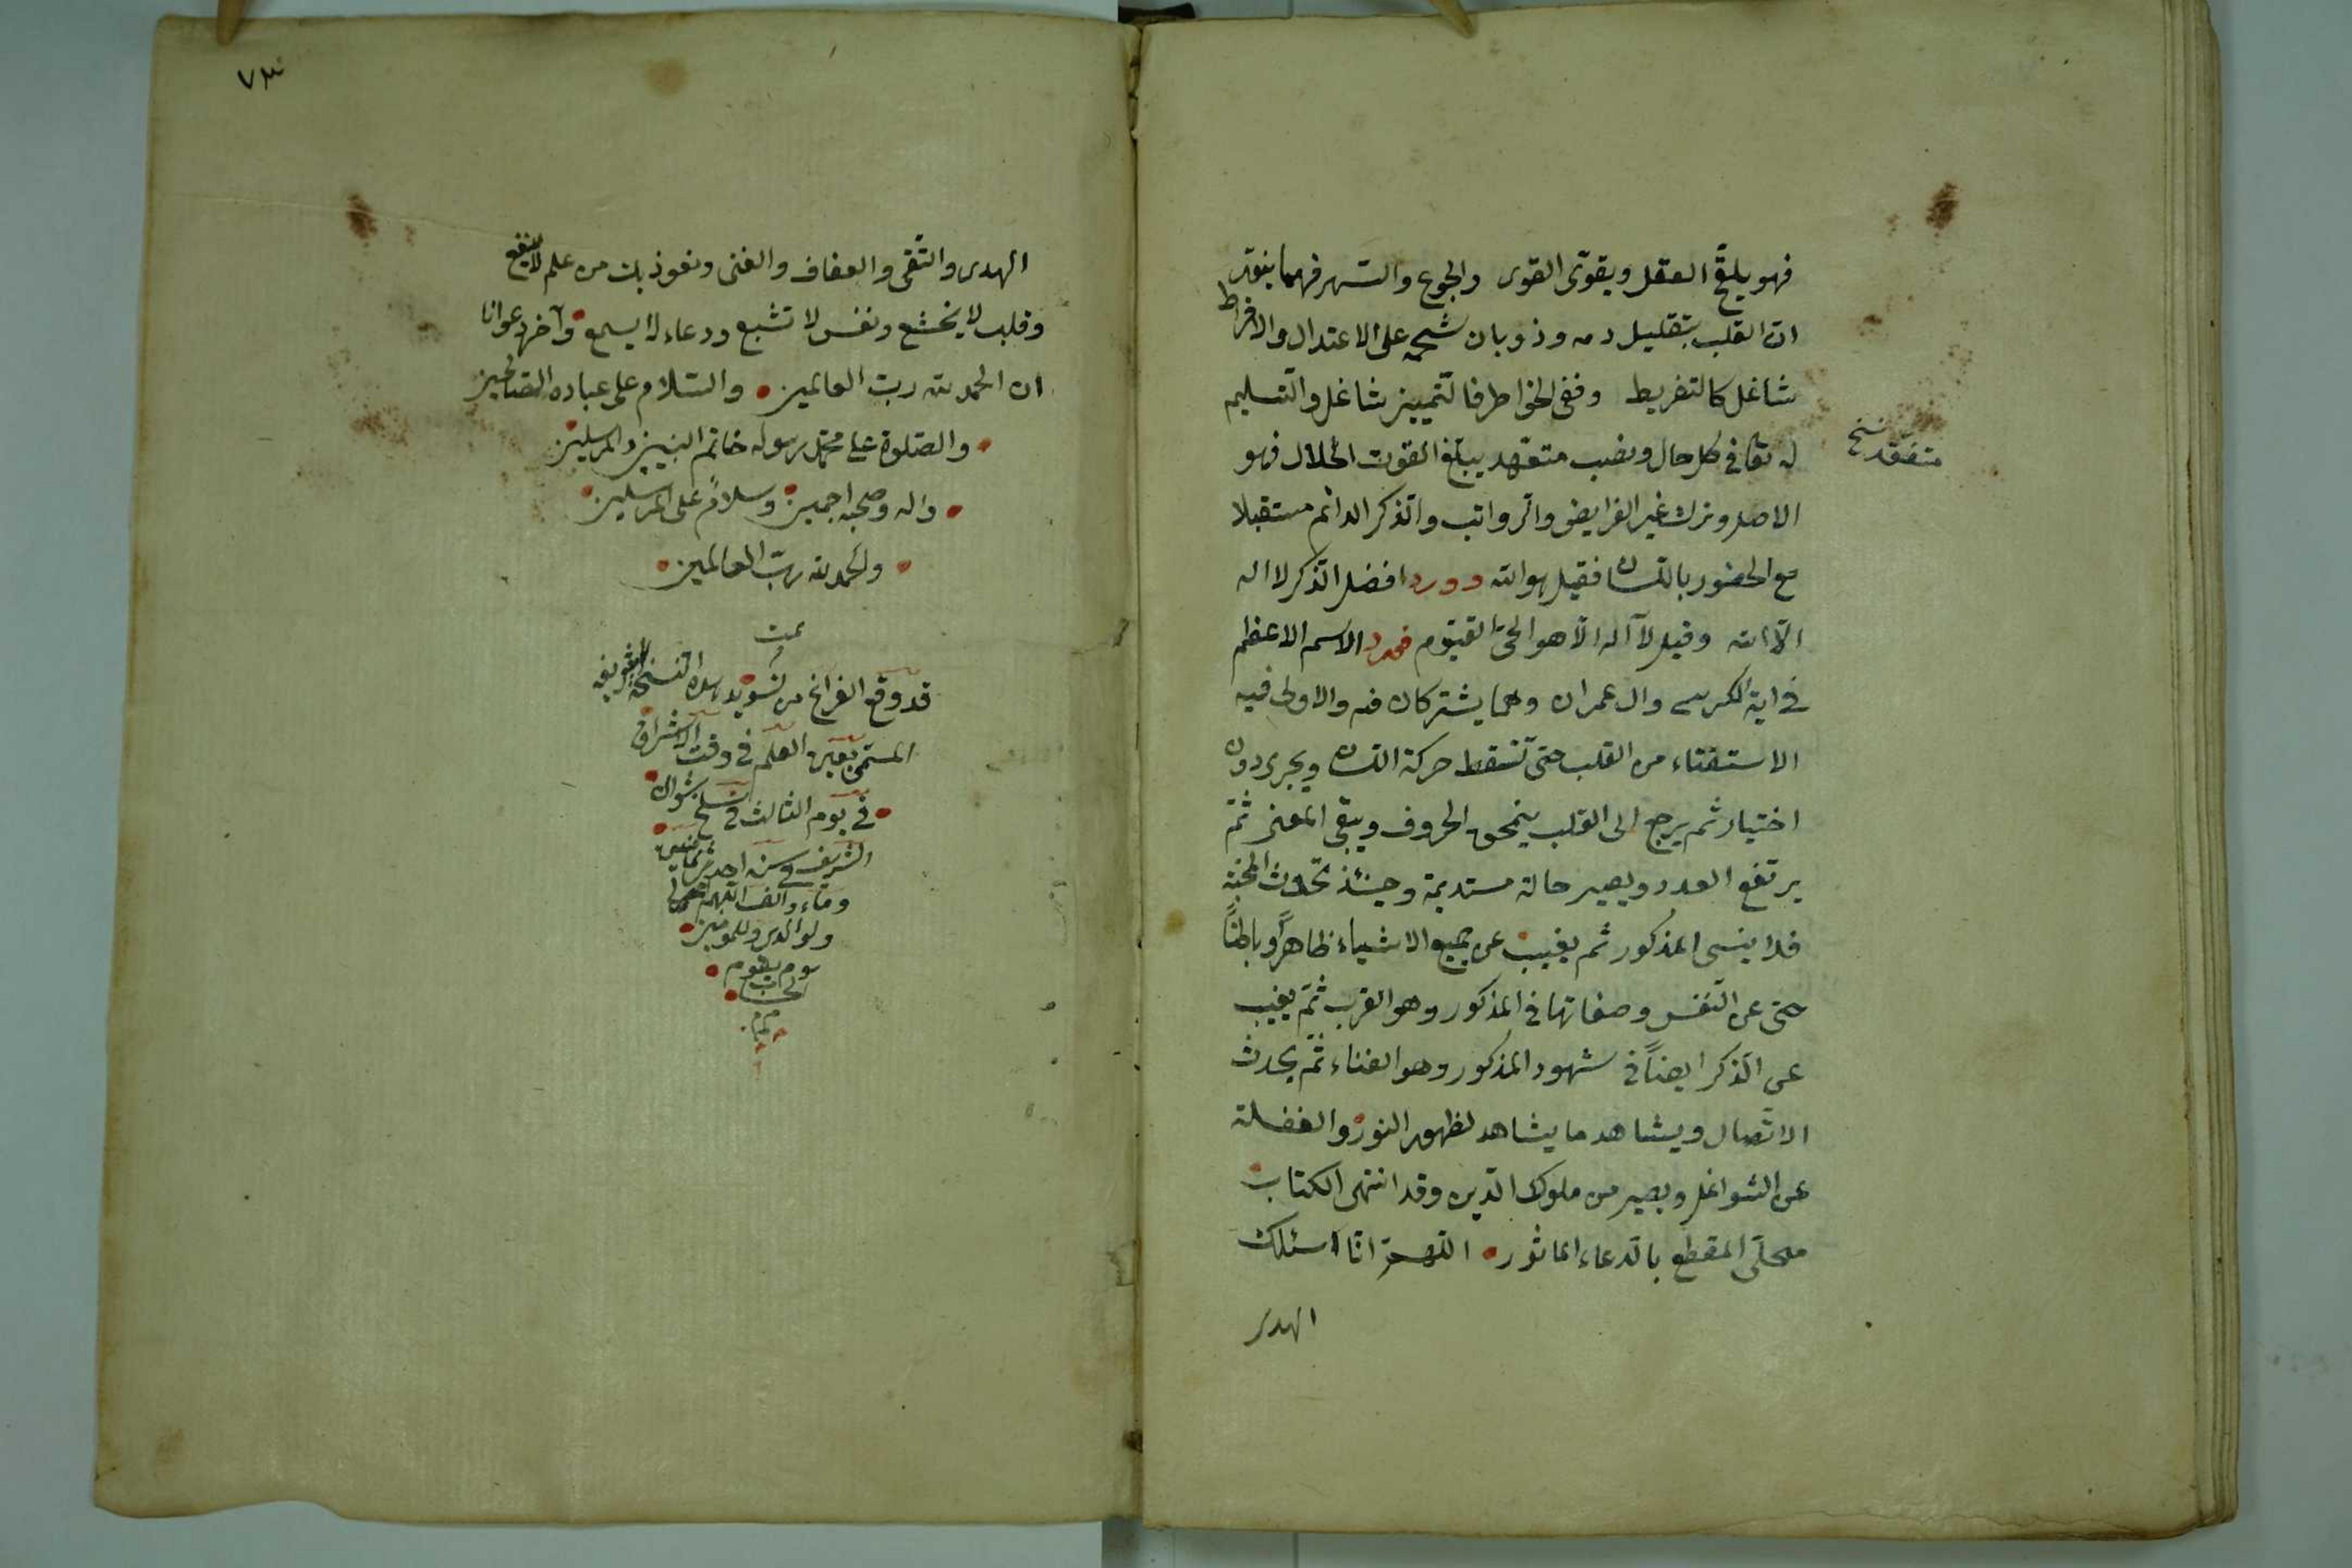 فهو يلقح العقل ويقوى القوى والجوع والسهر فهما ينوّر
ان القلب بتقليل دمه وذوبان شحمه على الاعتدال والافراط
شاغل كالتفريط ونفى الخواطر فالتمييز شاغل والتسليم
له تعا فى كل حال ونصب متعهد يبلغ القوت الحلال فهو
متفقد نسخ
الاصل وترك غير الفرايض والرواتب والذكر الدائم مستقبلا
مع الحضور باللسان فقيل هو الله وورد افضل الذكر لا اله
الّا الله وقيل لا آله الّا هو الحىّ القيّوم فورد الاسم الاعظم
فى اية الكرسى وال عمران وهما يشتركان فيه والاولى فيه
الاستفتاء من القلب حتى تسقط حركة اللسان ويجرى دون
اختيار ثم يرجع الى القلب ينمحق الحروف ويبقى المعنى ثمّ
يرتفع العدد ويصير حالة مستديمة وحينئذ تحدث المحبة
فلا ينسى المذكور ثم يغيب عن جميع الاشياء ظاهراً وباطناً
حتى عن النفس وصفاتها فى المذكور وهو القرب ثمّ يغيب
عن الذكر ايضاً فى شهود المذكور وهو الفناء ثمّ يحدث
الاتصال ويشاهد ما يشاهد لظهور النور والغفلة
عن الشواغل ويصير من ملوك الدين وقد انتهى الكتاب
محلّى المقطع بالدعاء الماثور اللهمّ انّا نسئلك
الهدى
٧٣
الهدى والتّقى والعفاف والغنى ونعوذ بك من علم لا ينفع
وقلب لا يخشع ونفس لا تشبع ودعاء لا يسمع وآخر دعوانا
ان الحمد لله ربّ العالمين والسّلام على عباده الصالحين
والصّلوة على محمّد رسوله خاتم النبيين والمرسلين
واله وصحبه اجمعين وسلام على المرسلين
والحمد لله ربّ العالمين
تمت
قد وقع الفراغ من تسويد هذه النسخة الشريفة
المسمى بعين العلم فى وقت الاشراق
فى يوم الثالث فى سلخ شوال
الشريف فى سنه احدى
ومائه والف اللهم اغفر لى
ولوالدى وللمؤمنين
يوم يقوم
الحساب